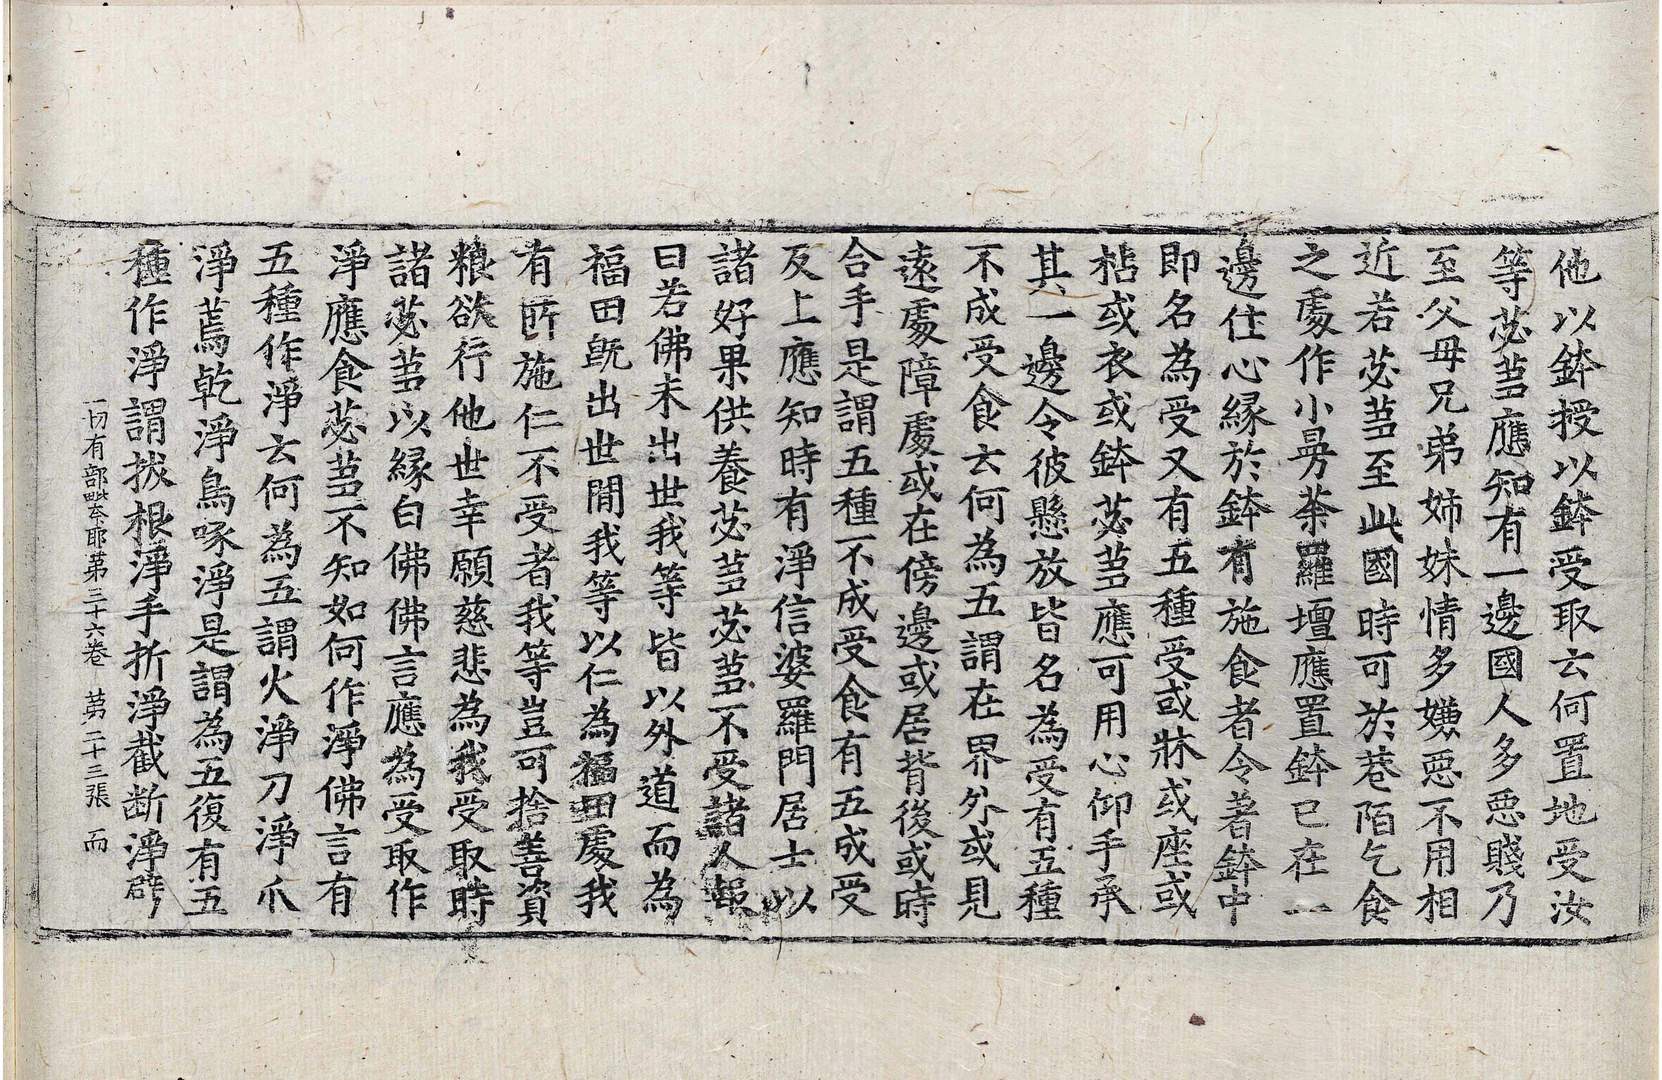 他以鉢授以鉢受取云何置地受汝
等苾芻應知有一邊國人多惡賤乃
至父母兄弟姉妹情多嫌惡不用相
近若苾芻至此國時可於巷陌乞食
之處作小曼茶羅壇應置鉢已在一
邊住心緣於鉢有施食者令著鉢中
即名為受又有五種受或牀或座或
枮或衣或鉢苾芻應可用心仰手承
其一邊令彼懸放皆名為受有五種
不成受食云何為五謂在界外或見
遠處障處或在傍邊或居背後或時
合手是謂五種不成受食有五成受
反上應知時有淨信婆羅門居士以
諸好果供養苾芻苾芻不受諸人報
曰若佛未出世我等皆以外道而為
福田既出世間我等以仁為福田處我
有所施仁不受者我等豈可捨善資
粮欲行他世幸願慈悲為我受取時
諸苾芻以緣白佛佛言應為受取作
淨應食苾芻不知如何作淨佛言有
五種作淨云何為五謂火淨刀淨爪
淨蔫乾淨鳥啄淨是謂為五復有五
種作淨謂拔根淨手折淨截断淨劈
一切有部毗奈耶第三十六卷 第二十三張 而